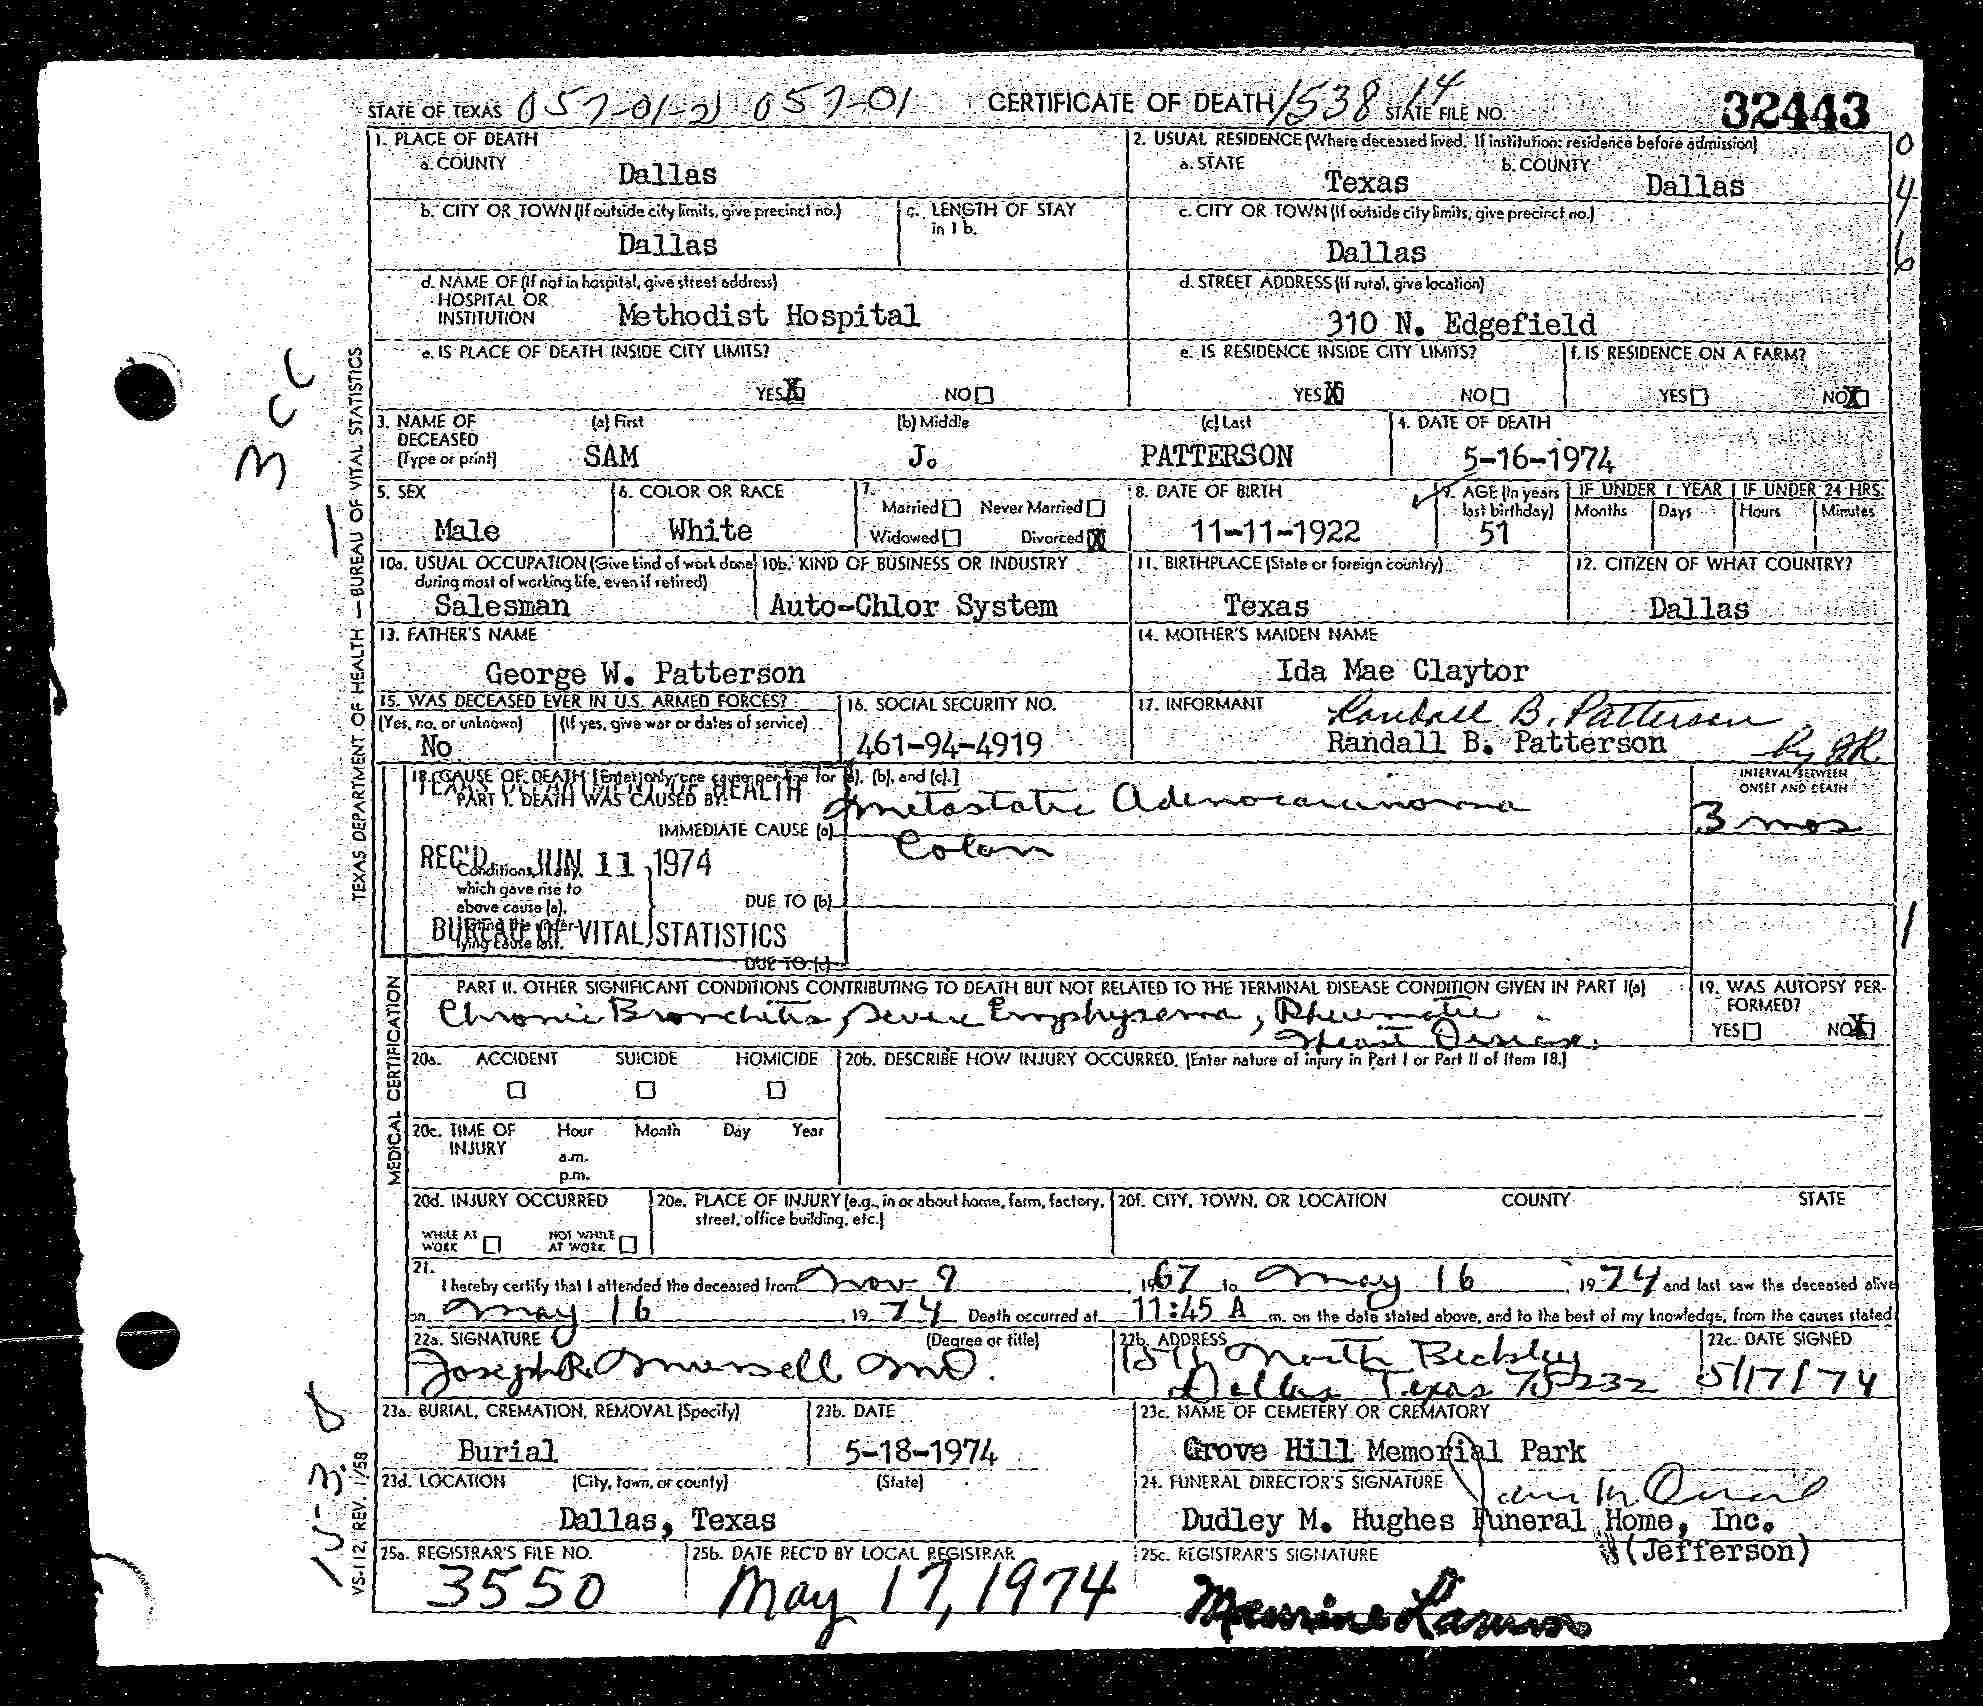 STATE OF TEXAS 057-01-21 057-01 CERTIFICATE OF DEATH 1538 14 STATE FILE NO. 32443
1. PLACE OF DEATH
a. COUNTY
Dallas
2. USUAL RESIDENCE (Where deceased lived. If institution: residence before admission)
a. STATE Texas b. COUNTY Dallas
0
4
6
b. CITY OR TOWN (If outside city limits, give precinct no.)
Dallas
c. LENGTH OF STAY in 1 b.
c. CITY OR TOWN (If outside city limits, give precinct no.)
Dallas
d. NAME OF (If not in hospital, give street address)
HOSPITAL OR
INSTITUTION Methodist Hospital
d. STREET ADDRESS (If rural, give location)
310 N. Edgefield
e. IS PLACE OF DEATH INSIDE CITY LIMITS?
YES X NO
e. IS RESIDENCE INSIDE CITY LIMITS?
YES X NO
f. IS RESIDENCE ON A FARM?
YES NO X
3. NAME OF DECEASED (Type or print)
(a) First (b) Middle (c) Last
SAM J. PATTERSON
4. DATE OF DEATH
5-16-1974
5. SEX
Male
6. COLOR OR RACE
White
7.
Married Never Married
Widowed Divorced X
8. DATE OF BIRTH
11-11-1922
9. AGE (In years last birthday)
51
IF UNDER 1 YEAR IF UNDER 24 HRS.
Months Days Hours Minutes
10a. USUAL OCCUPATION (Give kind of work done during most of working life, even if retired)
Salesman
10b. KIND OF BUSINESS OR INDUSTRY
Auto-Chlor System
11. BIRTHPLACE (State or foreign country)
Texas
12. CITIZEN OF WHAT COUNTRY?
Dallas
13. FATHER'S NAME
George W. Patterson
14. MOTHER'S MAIDEN NAME
Ida Mae Claytor
15. WAS DECEASED EVER IN U.S. ARMED FORCES?
(Yes, no, or unknown) (If yes, give war or dates of service)
No
16. SOCIAL SECURITY NO.
461-94-4919
17. INFORMANT Randall B. Patterson
Randall B. Patterson
18. CAUSE OF DEATH [Enter only one cause per line for (a), (b), and (c).]
TEXAS DEPARTMENT OF HEALTH
PART I. DEATH WAS CAUSED BY:
IMMEDIATE CAUSE (a) Metastatic Adenocarcinoma
Colon
INTERVAL BETWEEN ONSET AND DEATH
3 mos
REC'D JUN 11 1974
Conditions, if any,
which gave rise to
above cause (a),
stating the under-
lying cause last.
DUE TO (b)
BUREAU OF VITAL STATISTICS
DUE TO (c)
1
PART II. OTHER SIGNIFICANT CONDITIONS CONTRIBUTING TO DEATH BUT NOT RELATED TO THE TERMINAL DISEASE CONDITION GIVEN IN PART I(a)
Chronic Bronchitis, Severe Emphysema, Rheumatic
Heart Disease.
19. WAS AUTOPSY PERFORMED?
YES NO X
20a. ACCIDENT SUICIDE HOMICIDE
20b. DESCRIBE HOW INJURY OCCURRED. (Enter nature of injury in Part I or Part II of Item 18.)
20c. TIME OF INJURY Hour Month Day Year
a.m.
p.m.
20d. INJURY OCCURRED
WHILE AT WORK NOT WHILE AT WORK
20e. PLACE OF INJURY (e.g., in or about home, farm, factory, street, office building, etc.)
20f. CITY, TOWN, OR LOCATION COUNTY STATE
21.
I hereby certify that I attended the deceased from Nov 9 1967 to May 16, 1974 and last saw the deceased alive
on May 16 1974 Death occurred at 11:45 A m. on the date stated above, and to the best of my knowledge, from the causes stated
22a. SIGNATURE (Degree or title)
Joseph R. MD.
22b. ADDRESS
North Beckley
Dallas Texas 75232
22c. DATE SIGNED
5/17/74
23a. BURIAL, CREMATION, REMOVAL (Specify)
Burial
23b. DATE
5-18-1974
23c. NAME OF CEMETERY OR CREMATORY
Grove Hill Memorial Park
23d. LOCATION (City, town, or county) (State)
Dallas, Texas
24. FUNERAL DIRECTOR'S SIGNATURE
Dudley M. Hughes Funeral Home, Inc.
(Jefferson)
25a. REGISTRAR'S FILE NO.
3550
25b. DATE REC'D BY LOCAL REGISTRAR
May 17, 1974
25c. REGISTRAR'S SIGNATURE
TEXAS DEPARTMENT OF HEALTH — BUREAU OF VITAL STATISTICS
MEDICAL CERTIFICATION
VS-112, REV. 1/58